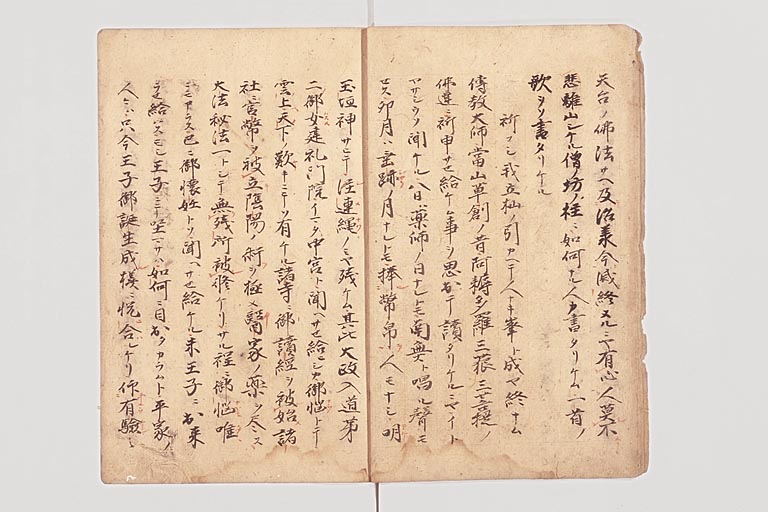 天台ノ佛法サヘ及治承今滅終ヌルニヤ有心人莫不
悲離山シケル僧ノ坊ノ柱ニ如何ナル人カ書タリケム一首ノ
歌ヲソ書タリケル
祈コシ我立杣ノ引カヘテ人ナキ峯ト成ヤ終ナム
傳教大師當山草創ノ昔阿耨多羅三藐三菩提ノ
佛達ニ祈申サセ給ケム事ヲ思出テ讀タリケルニヤイト
ヤサシウソ聞ケル八日ハ薬師ノ日ナレトモ南無ト唱ル聲モ
セス卯月ハ垂跡ノ月ナレトモ捧幣帛人モナシ明
玉垣神サヒテ注連縄ノミヤ残ケム其比大政入道第
二御女建礼門院イマタ中宮ト聞ヘサセ給シカ御悩トテ
雲上天下ノ歎キニテソ有ケル諸寺ニ御讀経ヲ被始諸
社ニ官幣ヲ被立陰陽ノ術ヲ極メ醫家ノ薬ヲ尽ス
大法秘法一トシテ無残所被修ケリサル程ニ御悩唯
ニモ御懐妊トソ聞ヘサセ給ケル未王子ニ出来
サセ給ハス王子ニテ坐ハ如何ニ目出カラムト平家ノ
人々只今王子御誕生成様ニ悦合レケリ御有験ニ